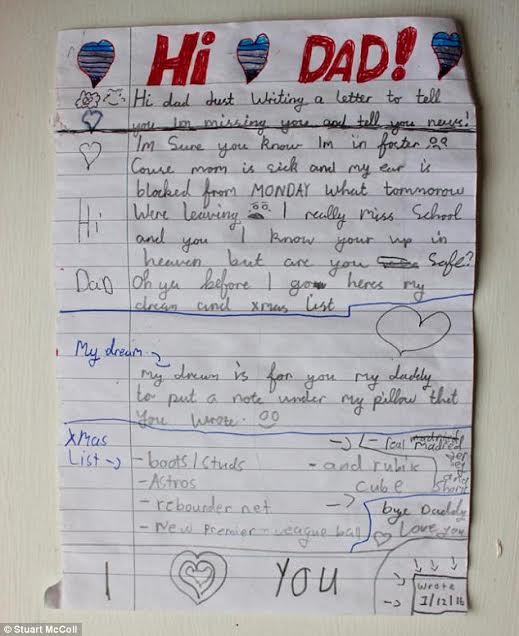 Hi DAD!
Hi dad Just Writing a letter to tell
you Im missing you and tell you news!
I'm Sure you know Im in foster
Couse mom is sick and my ear is
blocked from MONDAY what tommorow
Hi
Were leaving I really miss School
and you I know your up in
heaven but are you Safe?
DaD
Oh ya before I go heres my
dream and xmas list
My dream
My dream is for you my daddy
to put a note under my pillow that
you wrote.
Xmas
List
- boots/studs
- Astros
- rebounder net
- New Premier-league ball
- real madred
jersey
and
shorts
- and rubix
cube
bye Daddy
Love you
I YOU
wrote
1/12/16
© Stuart McColl